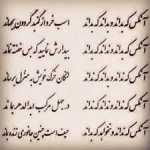 آنکس که بداند و بداند که بداند اسب خرد از گنبد گردون بجهاند
آنکس که بداند و نداند که بداند بیدارش نمایید که بس خفته نماند
آنکس که نداند و بداند که نداند لنگان خرک خویش به منزل برساند
آنکس که نداند و نداند که نداند در جهل مرکب ابدالدهر بماند
آنکس که نداند و نخواهد که بداند حیف است چنین جانوری زنده بماند